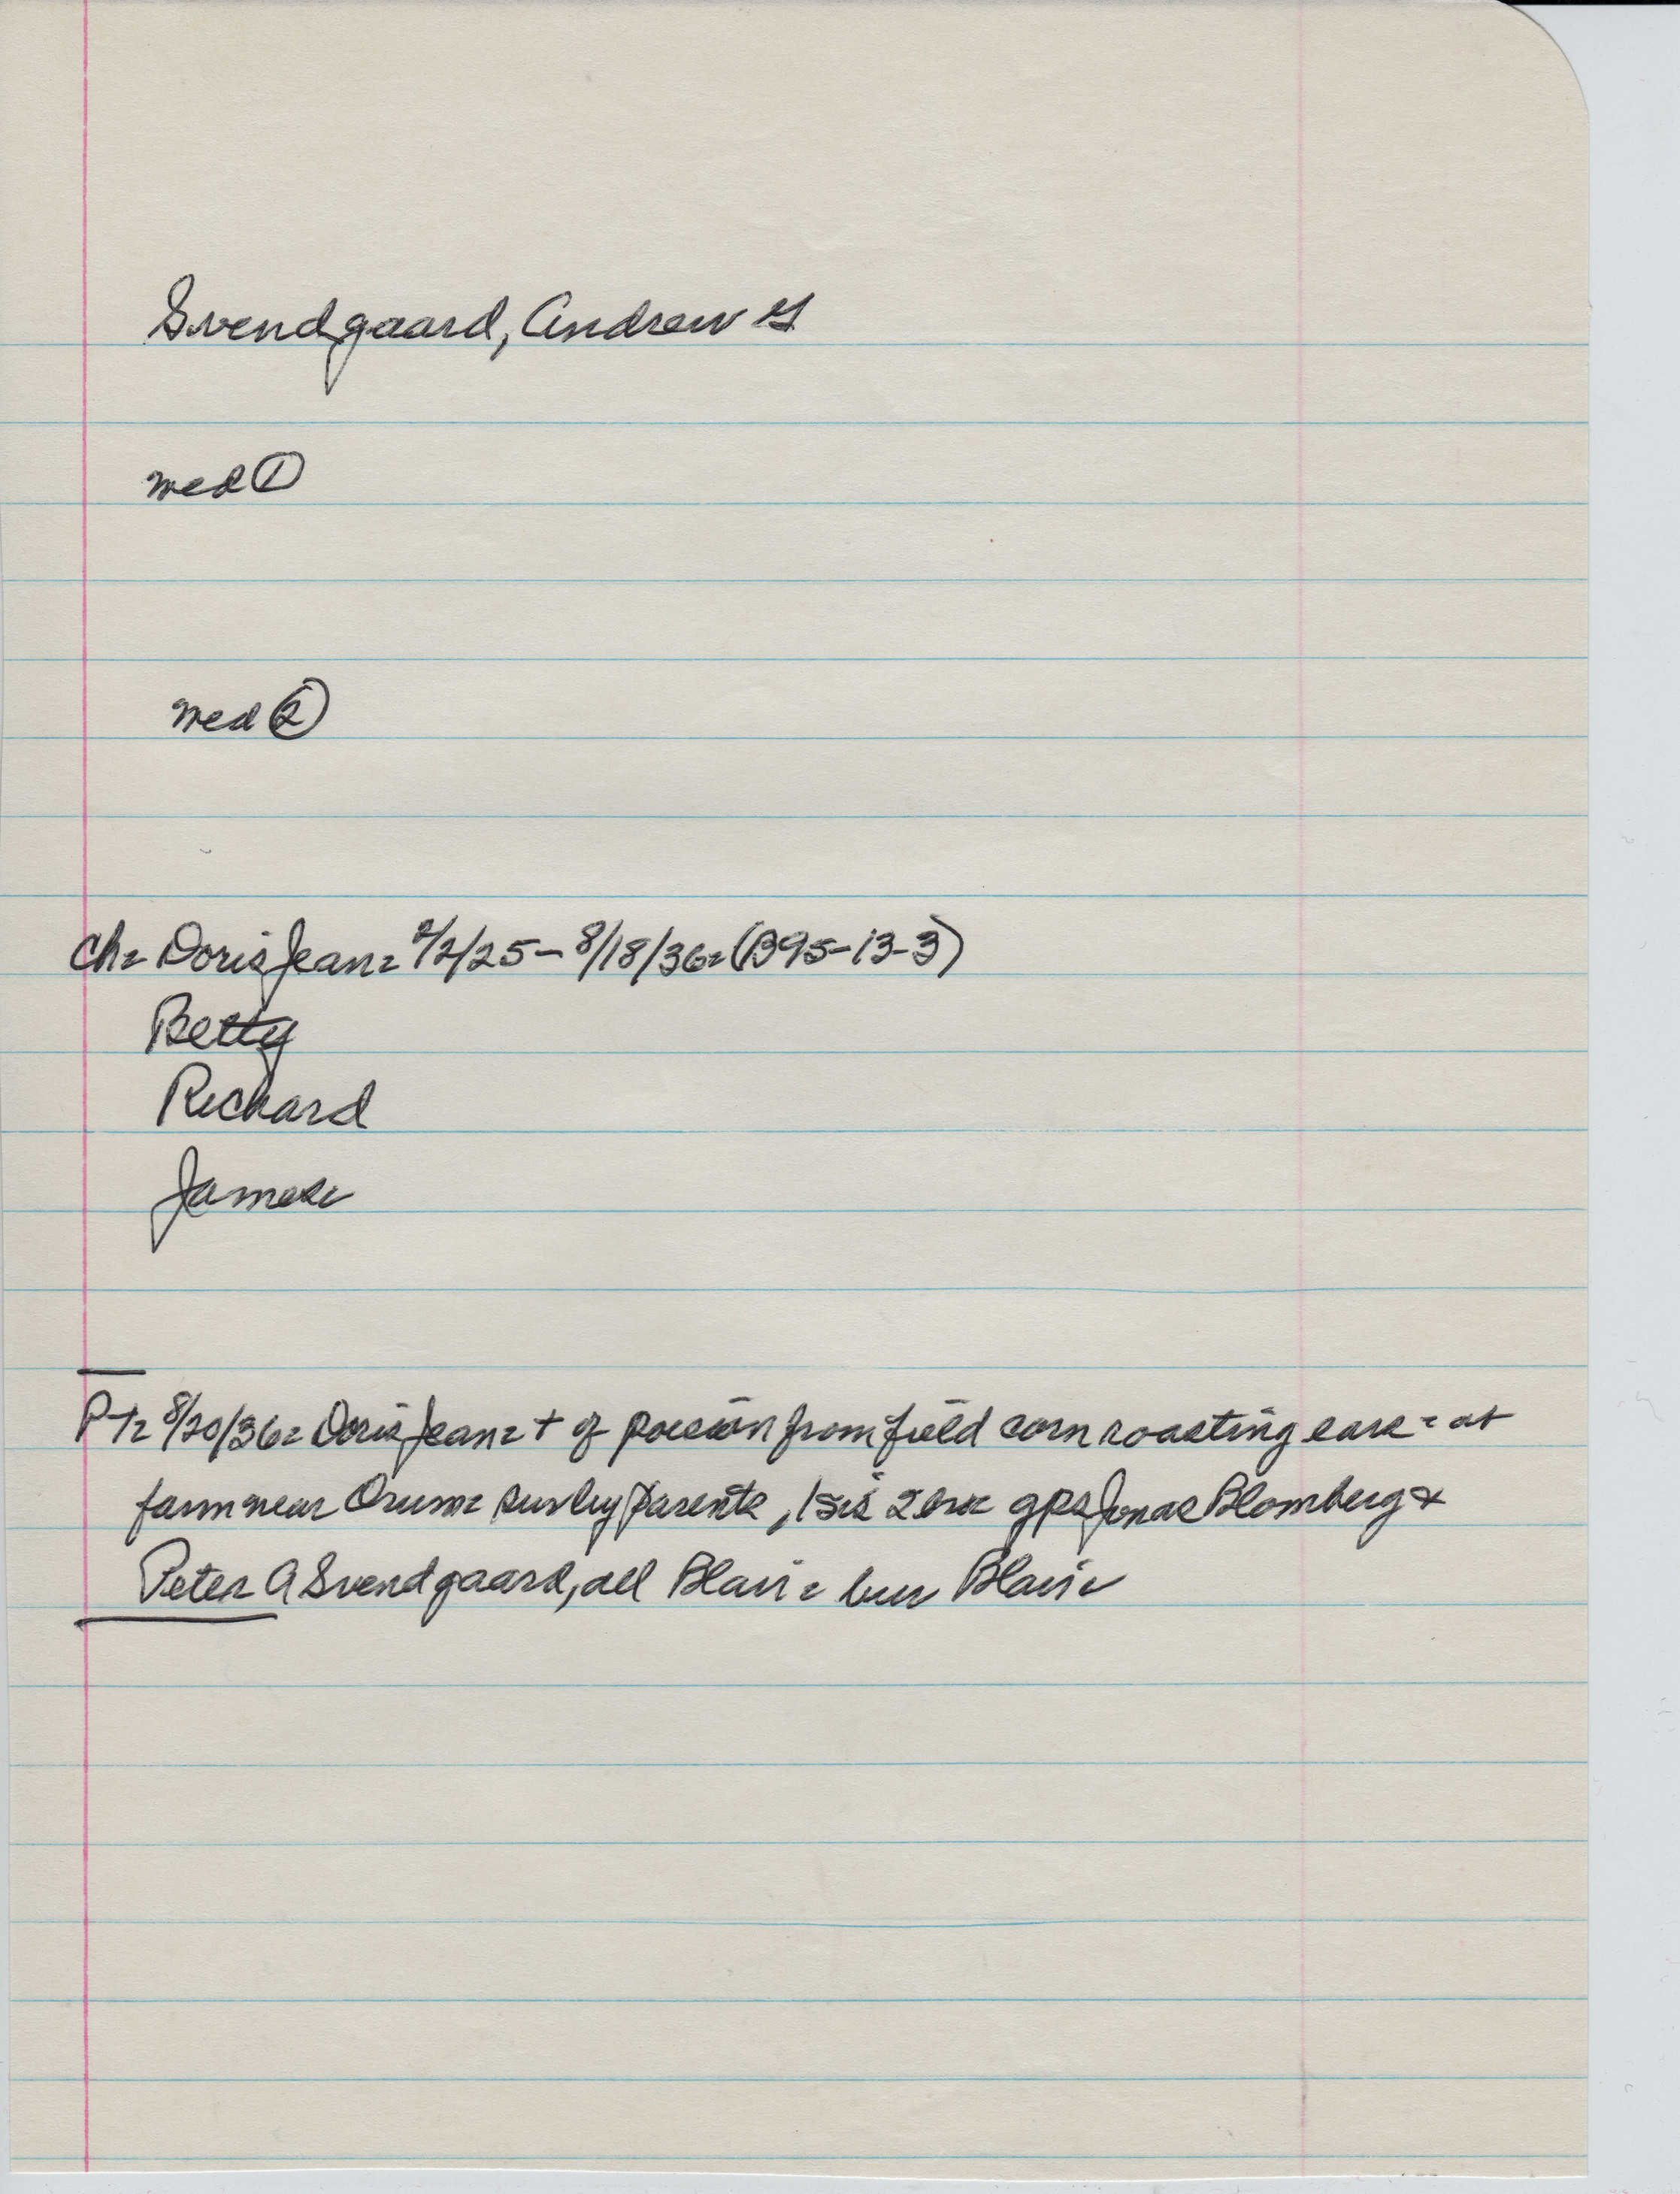 Svendgaard, Andrew G
med ①
med ②
Ch= Doris Jean= 2/2/25 - 8/18/36= (B95-13-3)
Betty
Richard
James=
PT= 8/20/36= Doris Jean= + of poison from field corn roasting ears= at
farm near Orum= sur by parents, 1 sis 2 bros= gps Jonas Blomberg &
Peter A Svendgaard, all Blair= bur Blair=